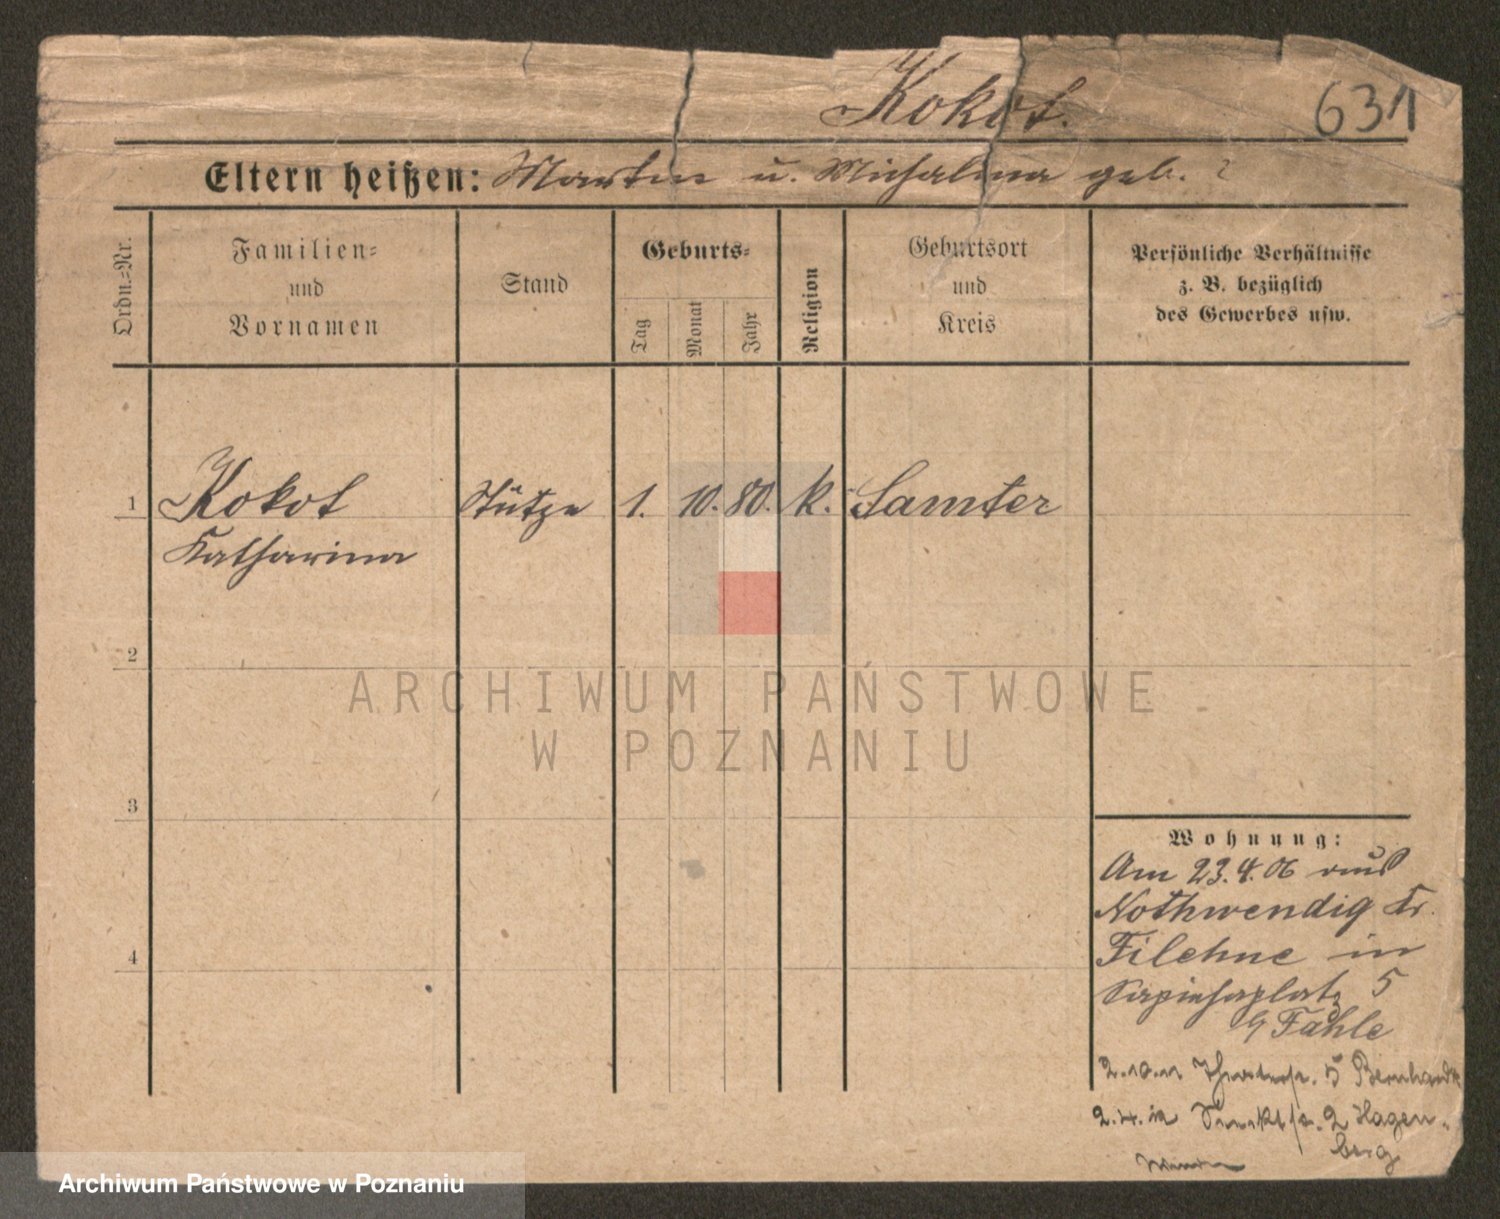 Kokot.
631
Eltern heißen: Martin u. Michalina geb. ?
Ordn.=Nr.
Familien=
und
Vornamen
Stand
Geburts=
Tag
Monat
Jahr
Religion
Geburtsort
und
Kreis
Persönliche Verhältnisse
z. B. bezüglich
des Gewerbes usw.
1 Kokot Stütze 1. 10. 80. k. Samter
Katharina
2
ARCHIWUM PAŃSTWOWE
W POZNANIU
3
Wohnung:
Am 23.4.06 aus
Nothwendig Kr.
Filehne in
4
Sapiehaplatz 5
b/ Fahle
2.10.11 5 Bernhardt
2.4.12 2 Hagen-
berg
Archiwum Państwowe w Poznaniu